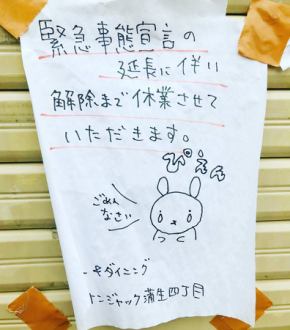 緊急事態宣言の
延長に伴い
解除まで休業させて
いただきます。
ぴえん
ごめん
なさい
トンジャック蒲生四丁目